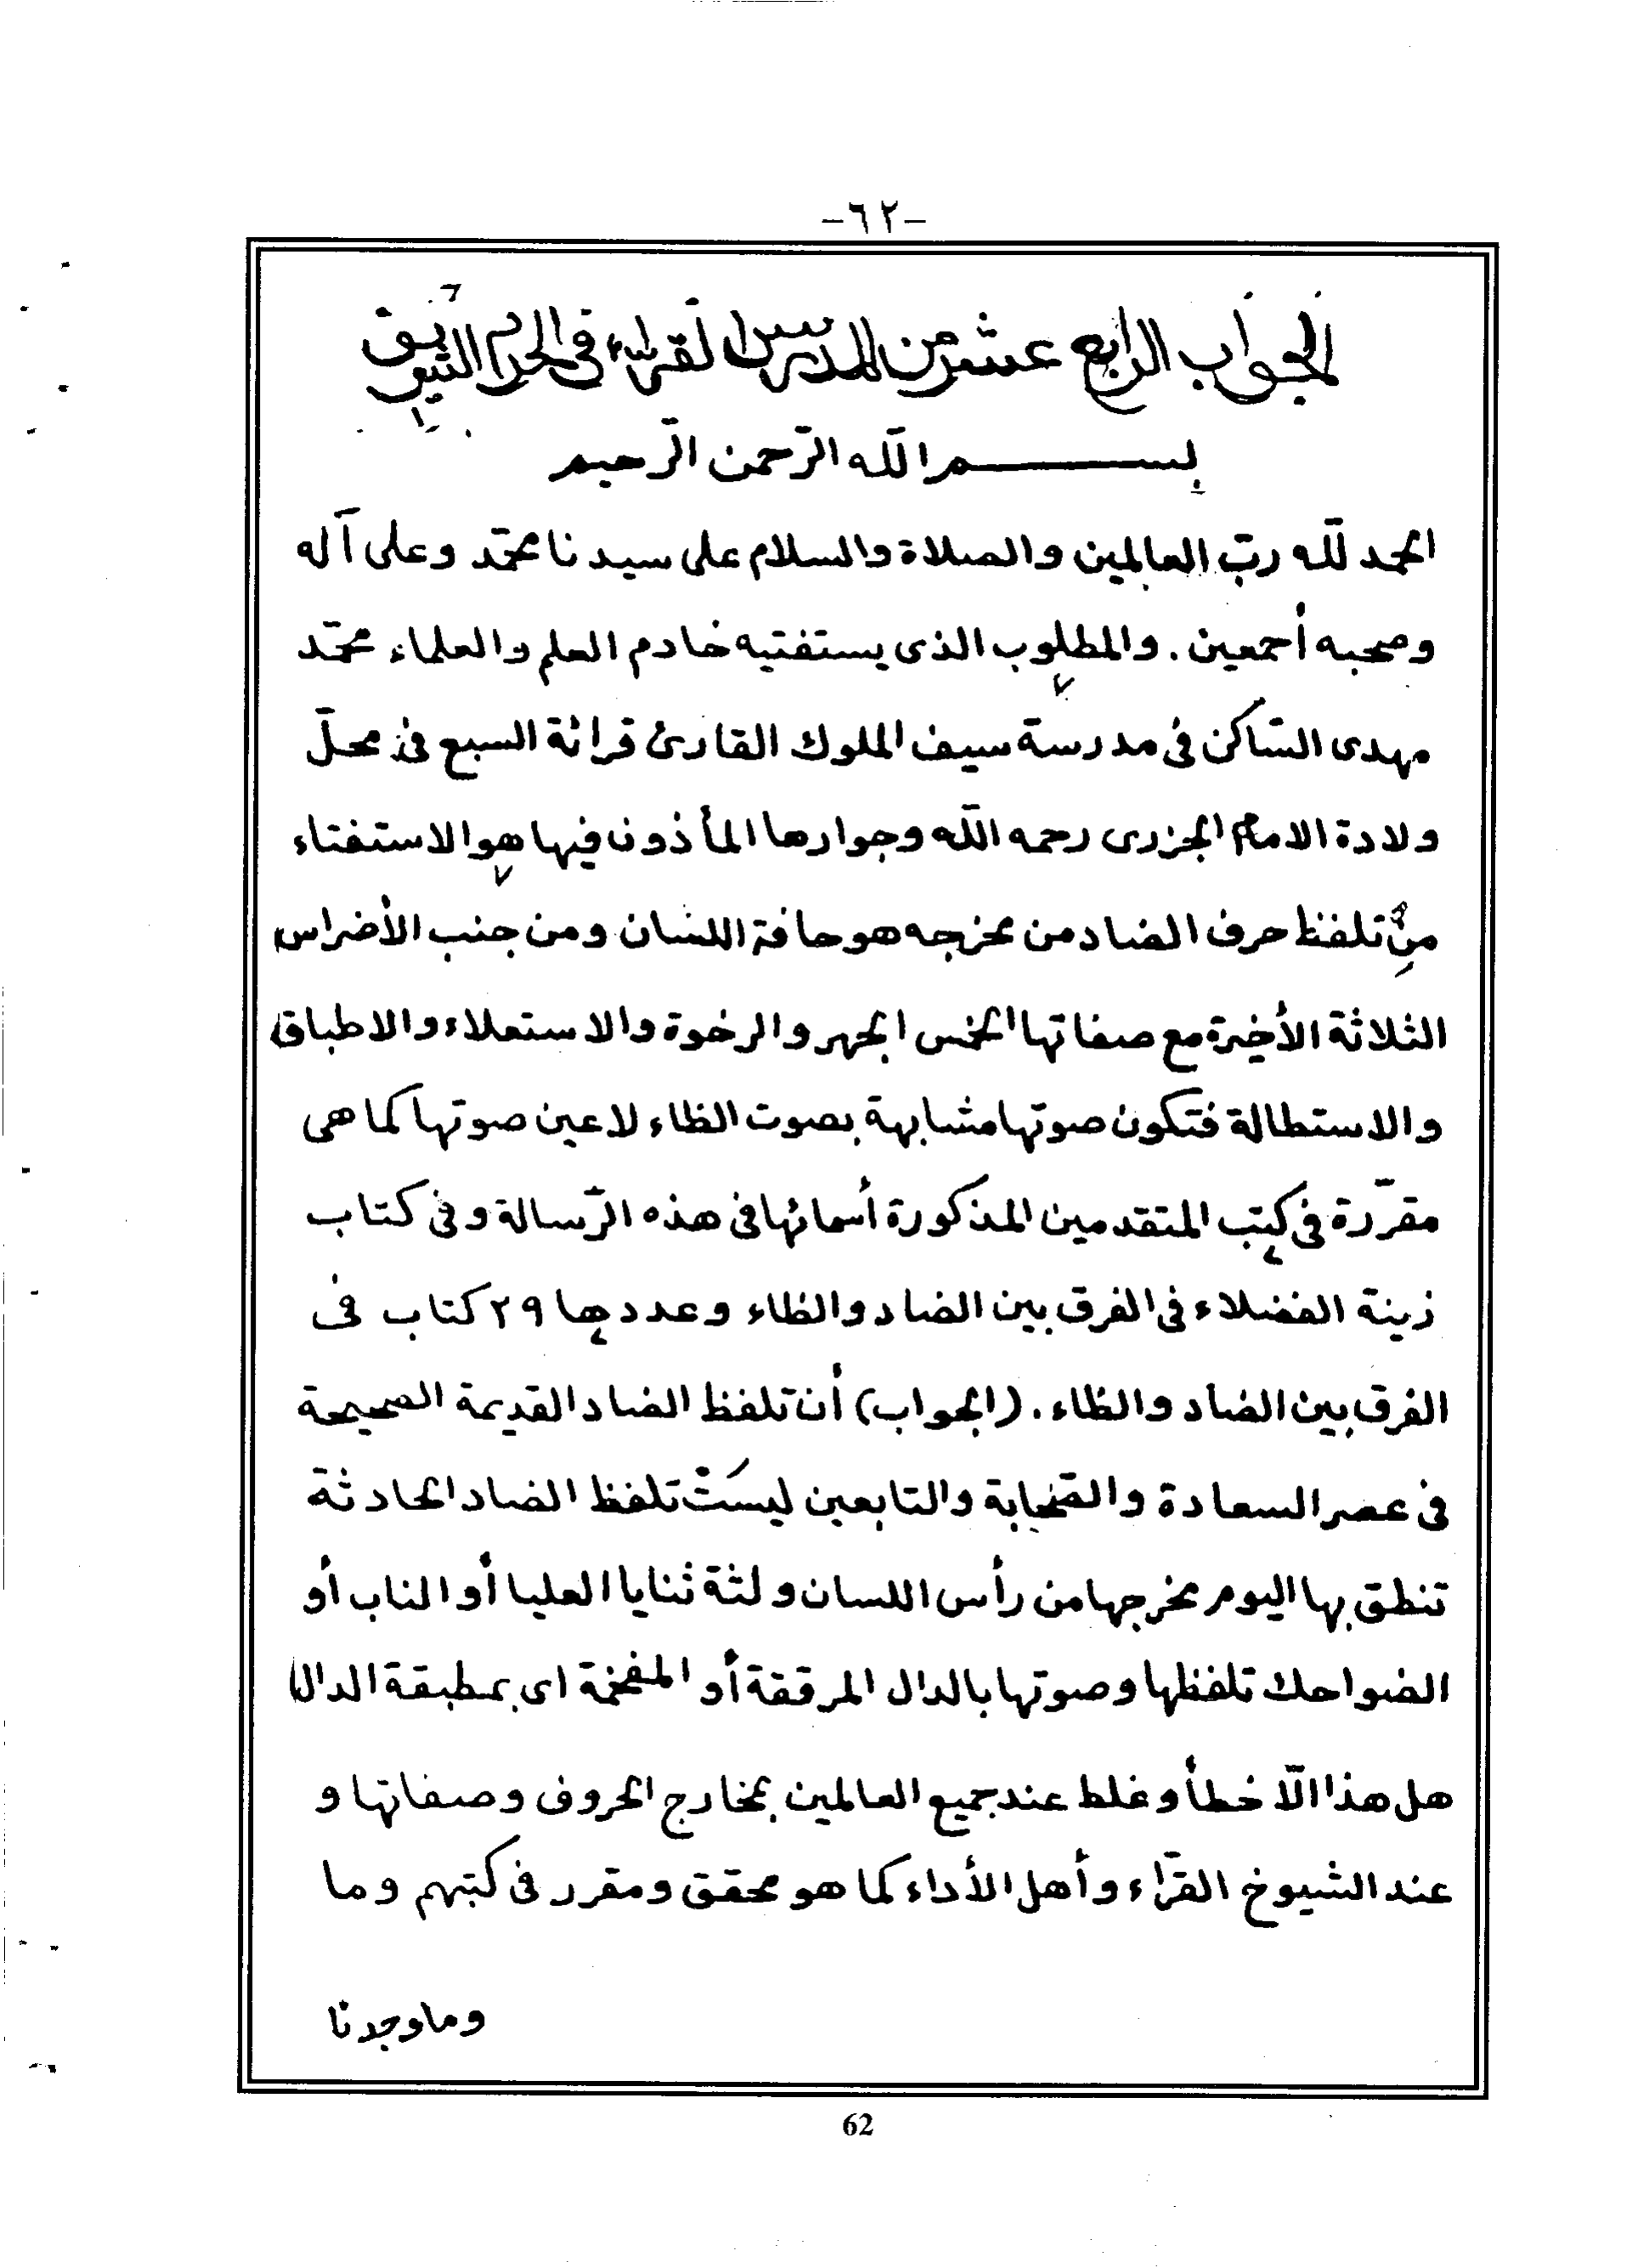 -٦٢-
الجواب الرابع عشر من المدرسين القراء في الحرام الشريف
بسم الله الرّحمن الرّحيم
الحمد لله ربّ العالمين والصلاة والسلام على سيدنا محمّد وعلى آله
وصحبه أجمعين . والمطلوب الذى يستفتيه خادم العلم والعلماء محمّد
مهدى السّاكن فى مدرسة سيف الملوك القارئ قرائة السبع فى محلّ
ولادة الامام الجزرى رحمه الله وجوارها المأذونا فيها هو الاستفتاء
من تلفظ حرف الضاد من مخرجه هو حافة اللسان ومن جنب الأضراس
الثلاثة الأخيرة مع صفاتها الخمس الجهر والرخوة والاستعلاء والاطباق
والاستطالة فتكون صوتها مشابهة بصوت الظاء لا عين صوتها كما هى
مقرّرة فى كتب المتقدمين المذكورة أسمائها فى هذه الرّسالة وفى كتاب
زينة الفضلاء فى الفرق بين الضاد والظاء وعددها ٢٩ كتاب فى
الفرق بين الضاد والظاء . (الجواب) أن تلفظ الضاد القديمة الصحيحة
فى عصر السعادة والصّحابة والتابعين ليست تلفظ الضاد الحادثة
تنطق بها اليوم مخرجها من رأس اللسان ولثة ثنايا العليا أو الناب أو
الضواحك تلفظها وصوتها بالدال المرققة أو المفخمة اى بمطبقة الدال
هل هذا الّا خطأ وغلط عند جميع العالمين بمخارج الحروف وصفاتها و
عند الشيوخ القرّاء وأهل الأداء كما هو محقق ومقرر فى كتبهم وما
وما وجدنا
62